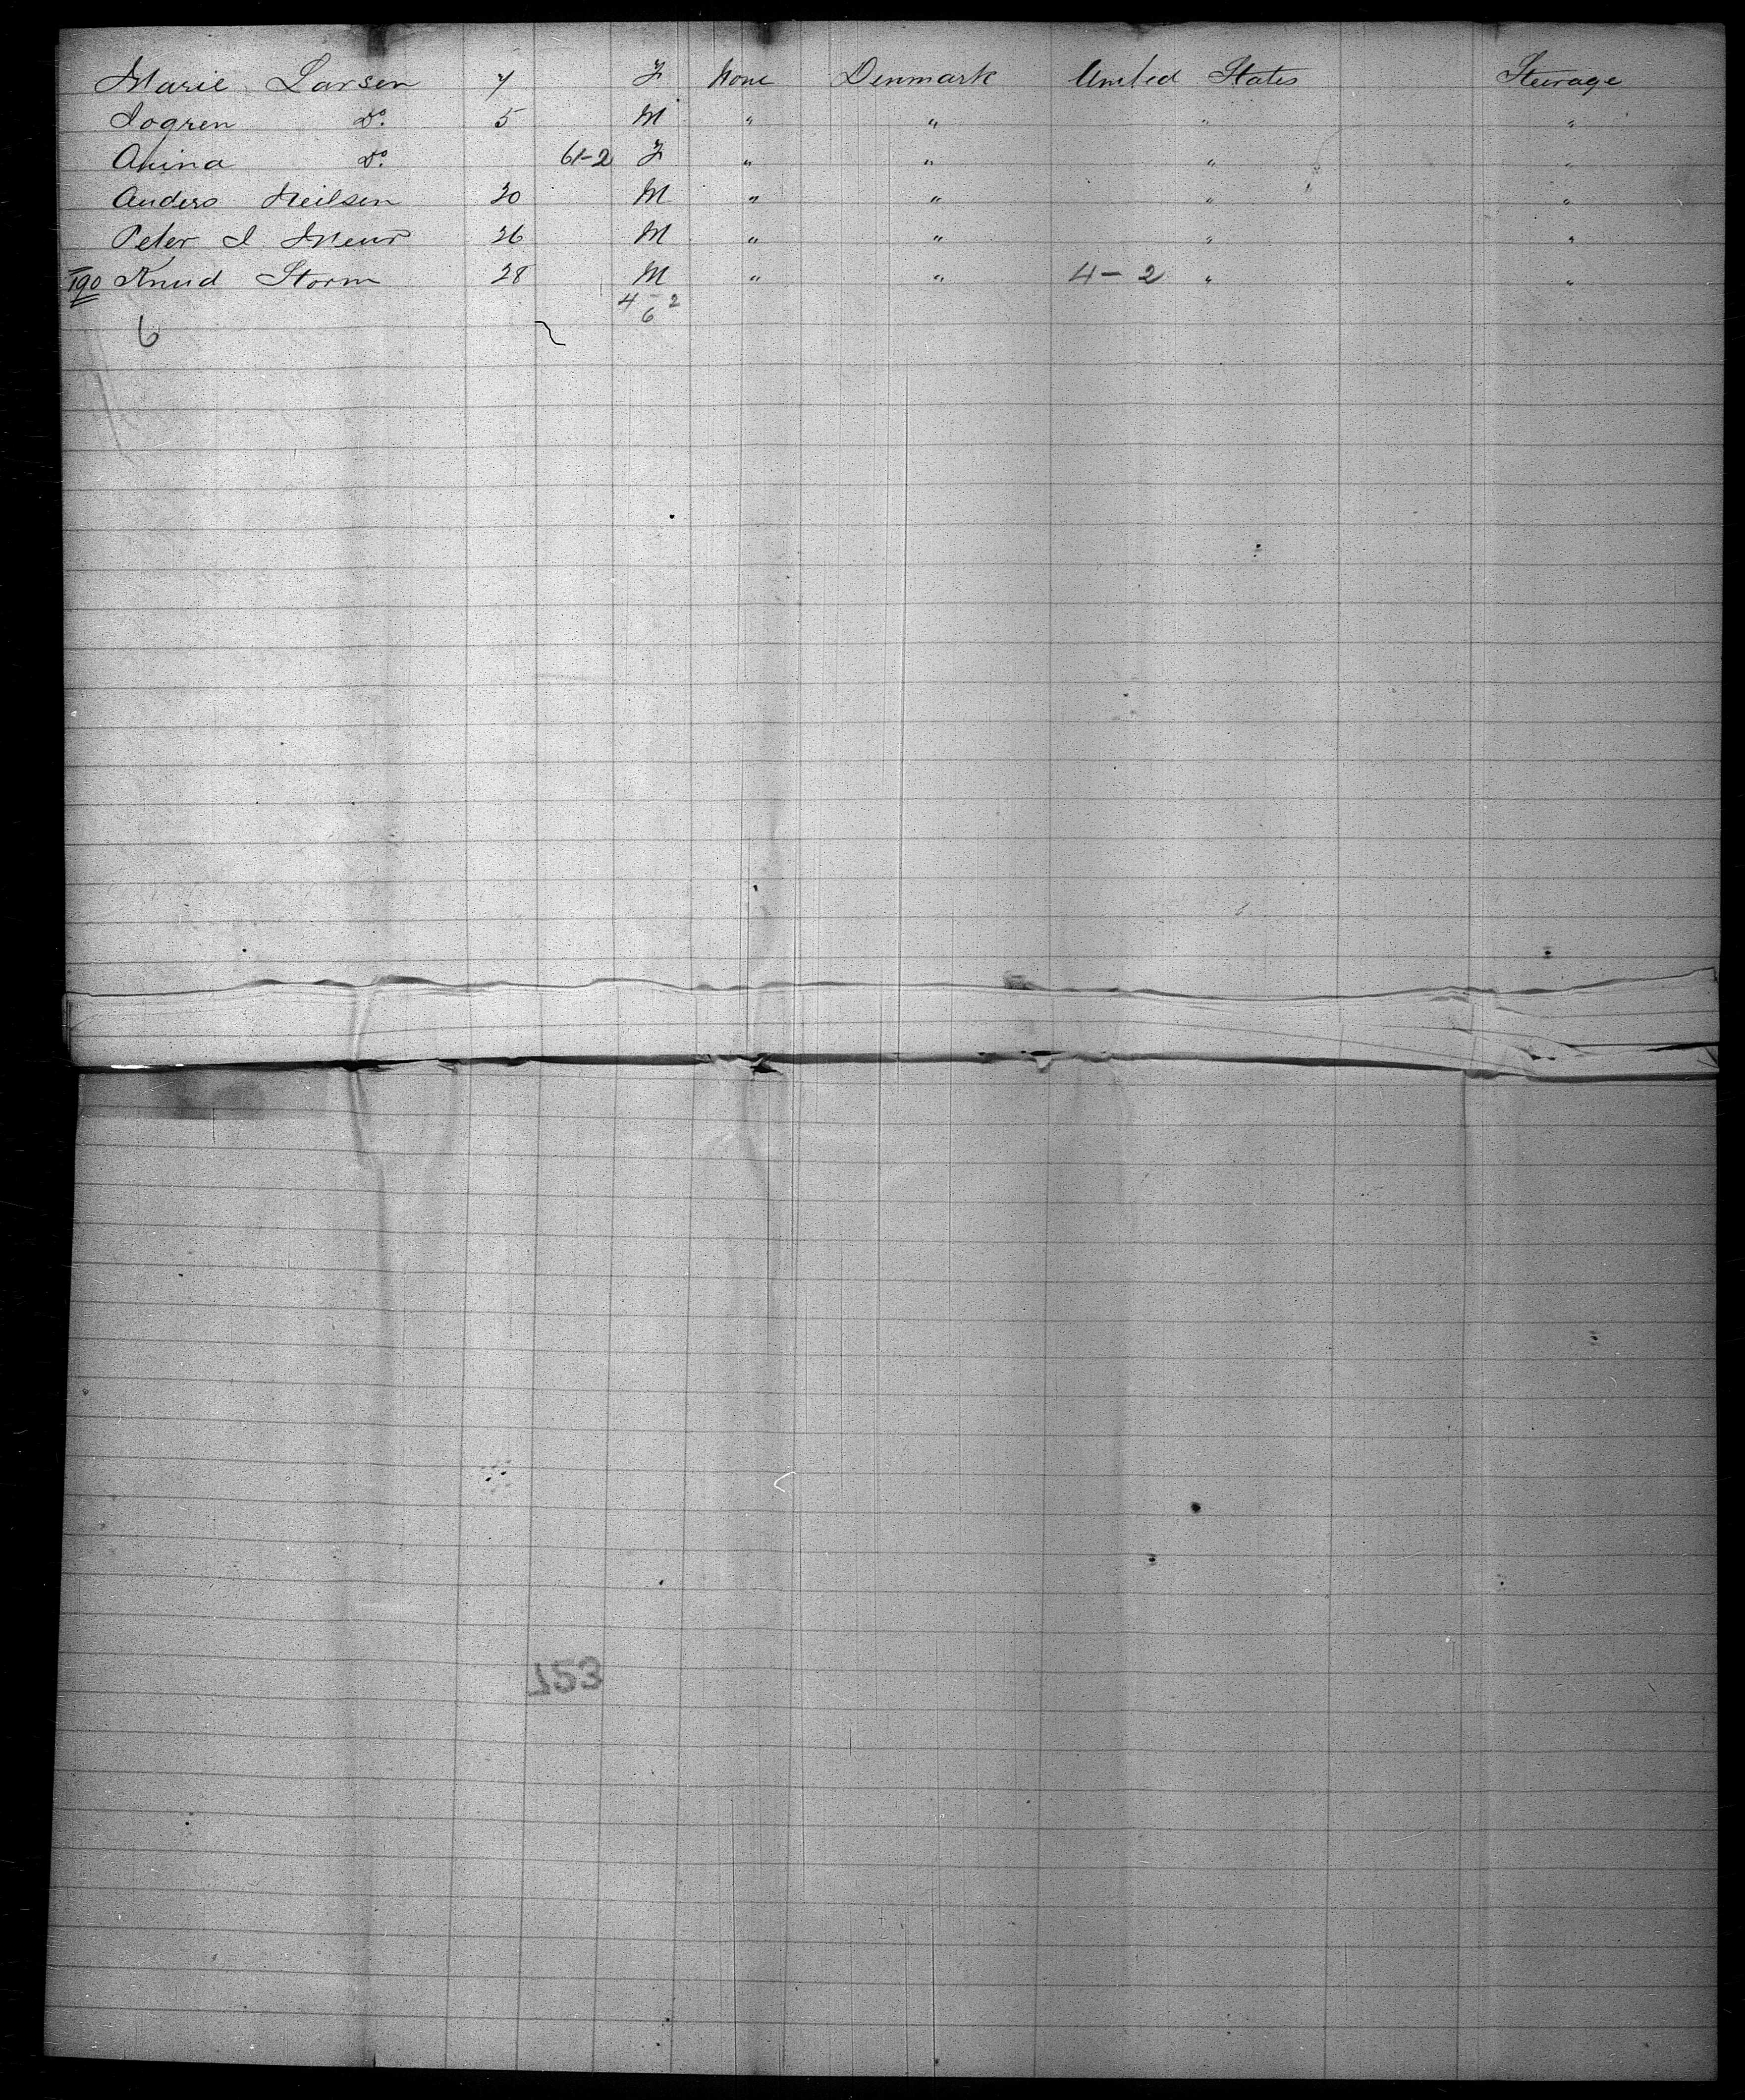 Marie Larsen 7 F None Denmark United States Steerage
Sogren Do. 5 M " " " "
Anina Do. 6 F " " " "
Anders Neilsen 20 M " " " "
Peter I 26 M " " " "
190 Knud Storm 28 M " " 4-2 " "
4-2
6
6
753